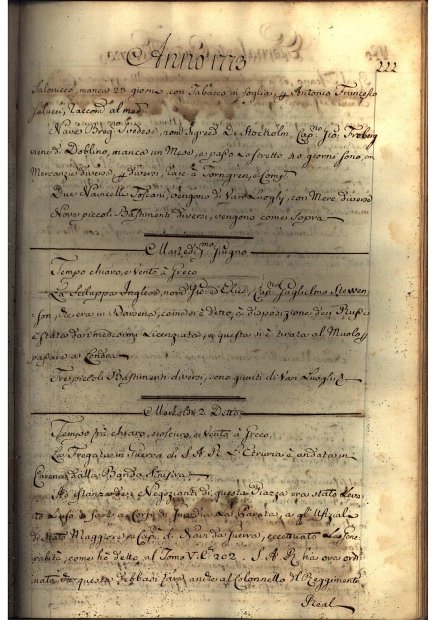 Anno 1773
222
Salonicco, manca 23 giorni, con Tabacco in foglia, Antonio Francesco
Salucci, racc.
Nave Brig. Svedese, nom. Sigred De Stockolm, Cap.no Gio:
viene di Doblino, manca un Mese, e passò lo stretto 10 giorni sono, con
Mercanzie diverse p diversi, racc. à Törngren, e Comp.
Due Navicelli Toscani, vengono di Vari Luoghi, con Merc. diverse
Nove piccoli Bastimenti diversi, vengono come Sopra
Martedì p.mo Giugno
Tempo chiaro, e vento à Greco
La Scialuppa Inglese, nom. Cap.no Guglielmo Stewen-
son, che era in Darsena, come si è detto, à disposizione dei Russi
è stata da i medesimi Licenziata, e questa si è tirata al Muolo, p
passare à Londra
Tre piccoli Bastimenti diversi, sono giunti di Vari Luoghi
Mercoledì 2 Detto
Tempo frà chiaro, e oscuro, e vento à Greco
La Fregata in Guerra di S. A. R. L'Etruria è andata in
Carena dalla Banda Sinistra
Ad istanza dei Negozianti di questa Piazza era stato Leva-
to l'uso di fare a Corpi di Guardia La Parata, a gl'Ufiziali
di Stato Maggiore, e Cap.ni di Navi da Guerra, eccettuato La Gene-
ralità, come hò detto al Tomo V. C. 202. S. A. R. ha ora ordi-
nato, che questa debbasi fare anche al Colonnello del Reggimento
Real